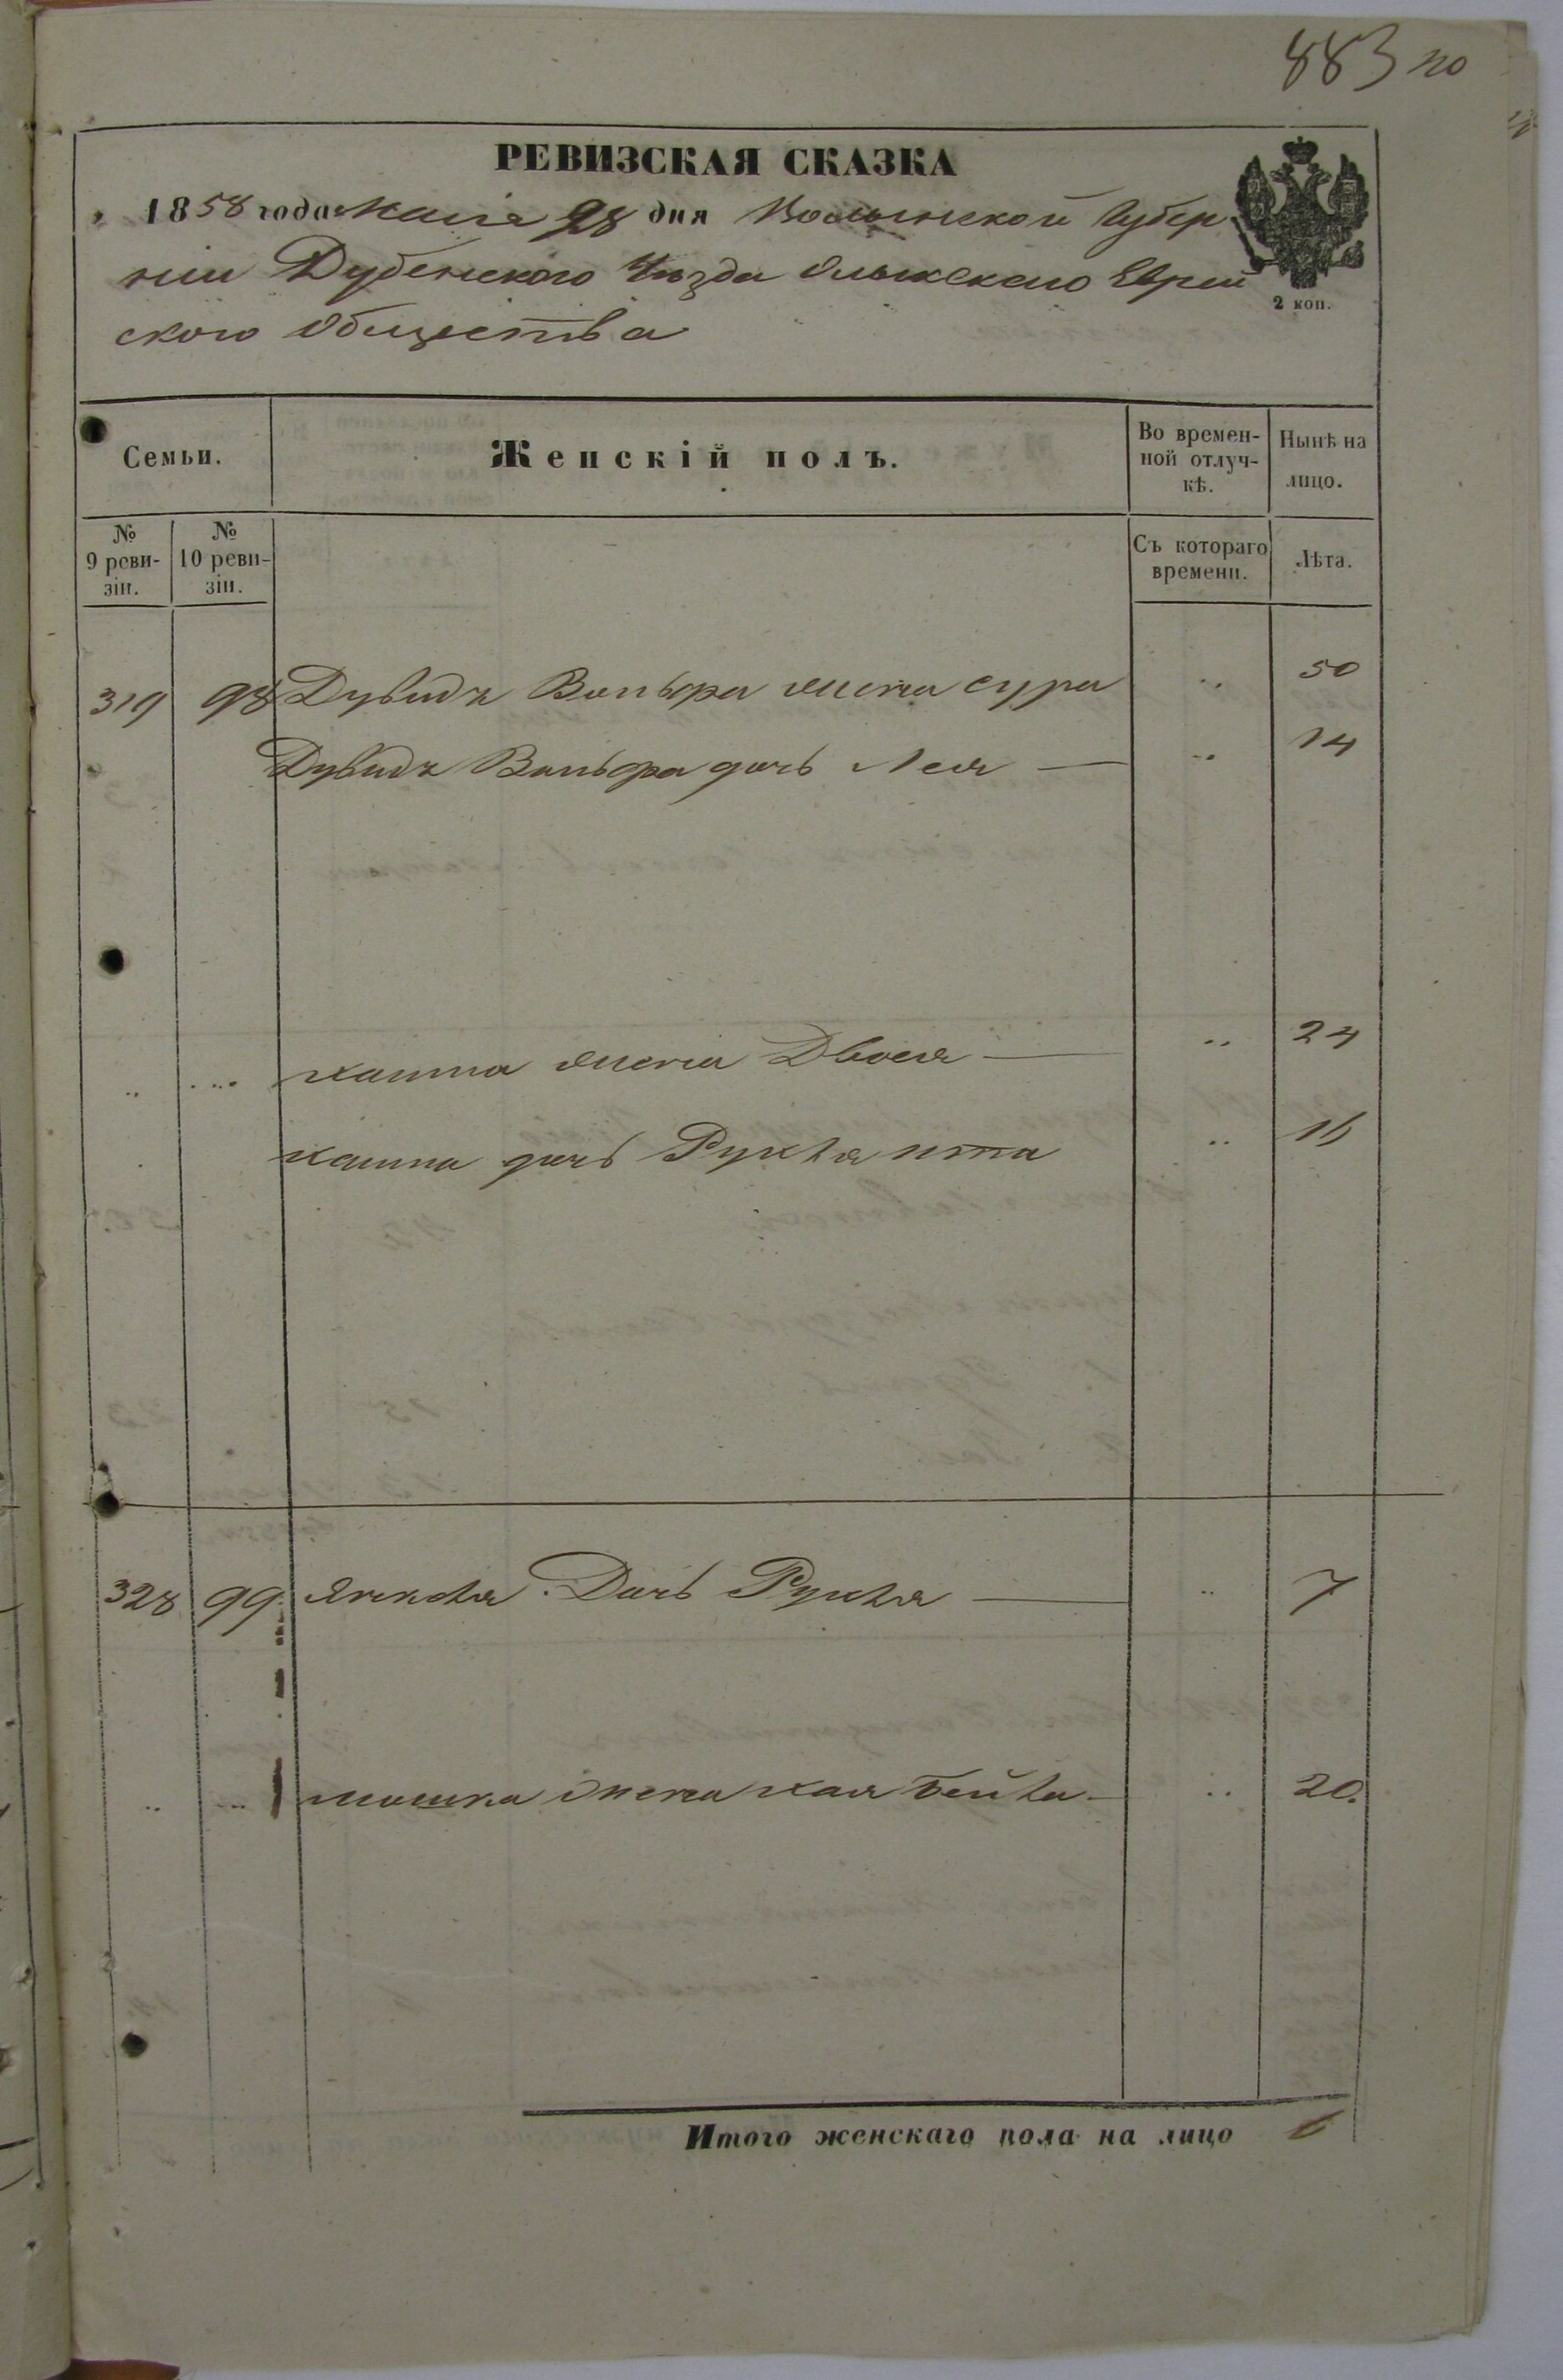 883 110
РЕВИЗСКАЯ СКАЗКА
1858 года Маия 28 дня Волынской Губер
ніи Дубенского Уѣзда Олыкского Еврей
ского Общества
2 коп.
Семьи. Женскій полъ. Во времен-ной отлуч-кѣ. Нынѣ на лицо.
№ 9 реви-зіи. № 10 реви-зіи. Съ котораго времени. Лѣта.
319 98 Дувидъ Вольфа жена сура .. 50
Дувидъ Вольфа дочь Лея — .. 14
.. ... хаима жена Двося — .. 24
хаима дочь Рухля ита .. 1/2
328 99 Янкеля Дочь Рухля — .. 7
.. ... мошка жена хая бейла — .. 20.
Итого женскаго пола на лицо 6